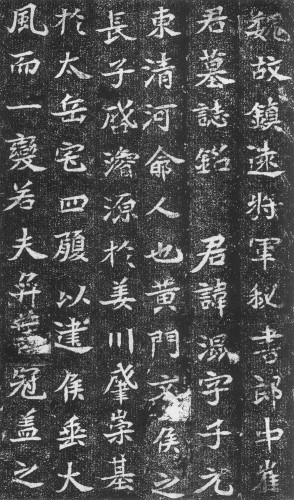 魏故鎮遠将軍秘書郎中崔
君墓誌銘 君諱混字子元
東清河俞人也黃門文侯之
長子濬源於姜川肇崇基
於太岳宅四履以建侯垂大
風而一變若夫弈冠盖之